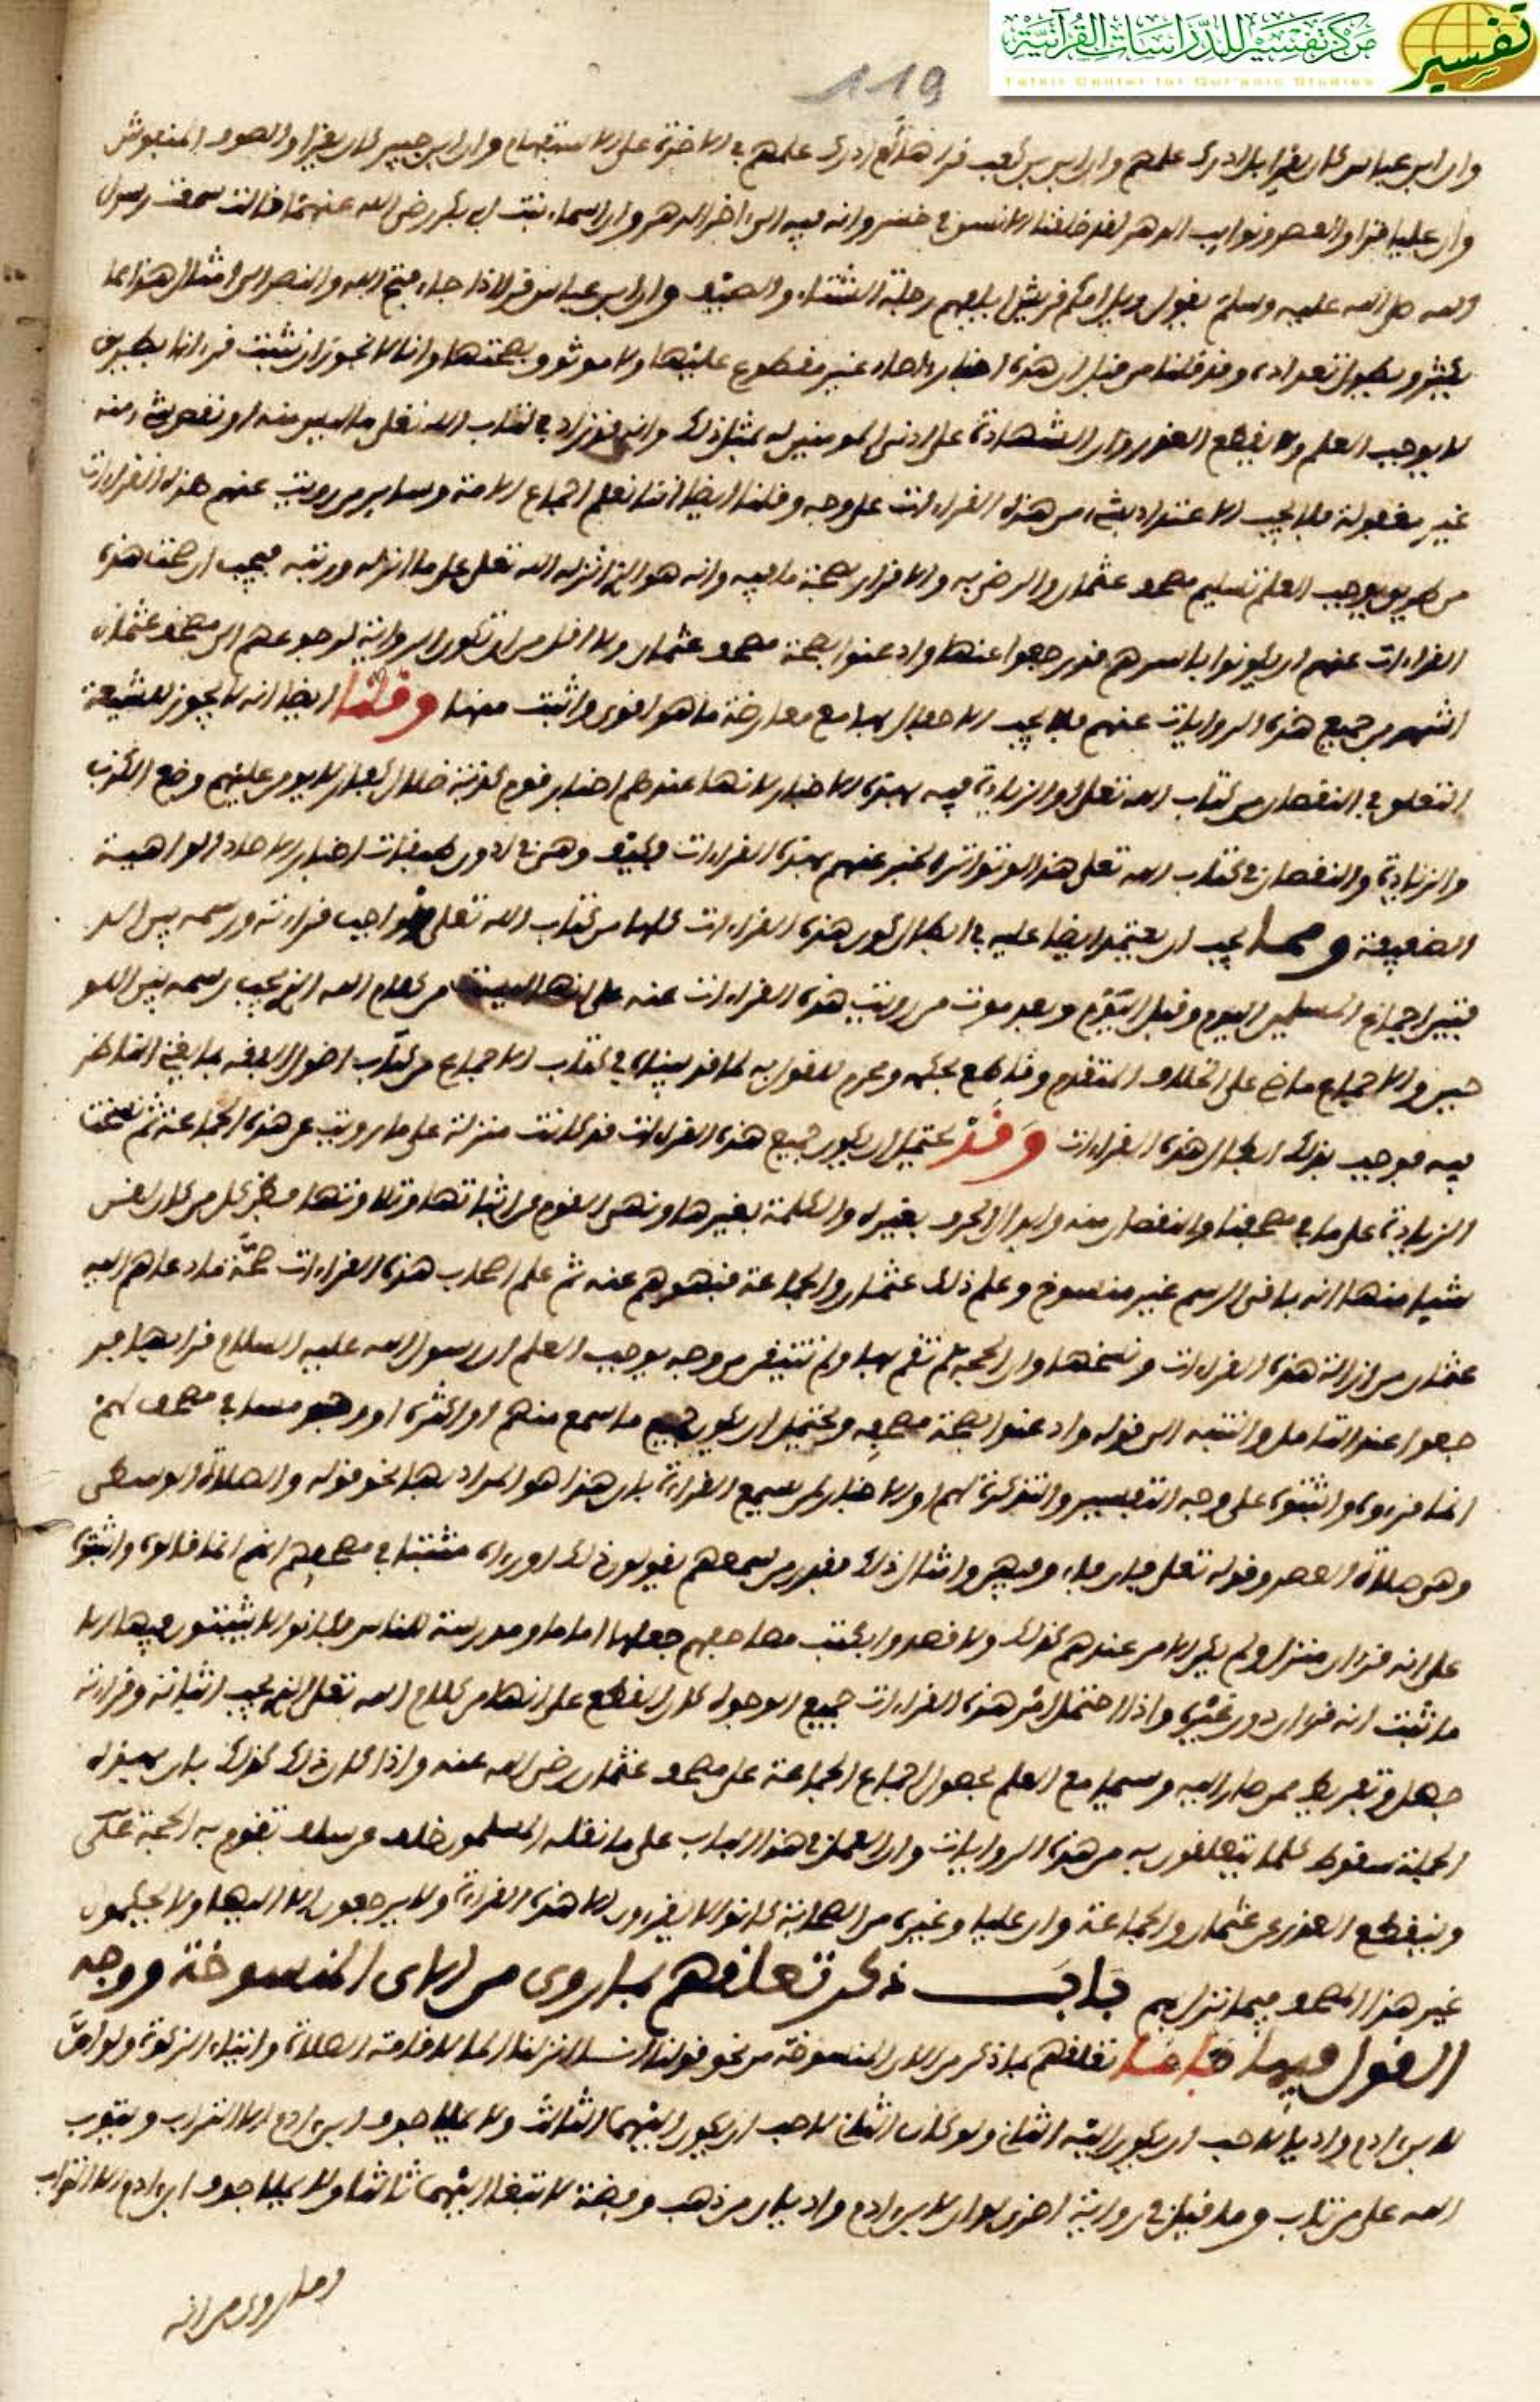 مركز تفسير للدراسات القرآنية
Tafsir Center for Qur'anic Studies
تفسير
119
وان ابن عباس كان يقرا بل ادرك علمهم وان ابي بن كعب قرا هذا ادرك علمهم في الاخرة على الاستفهام وان ابن جبير كان يقرا والصوف المنفوش
وان عليا قرا والعصر ونوايب الدهر لقد خلقنا الانسن في خسر وانه فيه الى اخر الدهر وان اسماء بنت ابي بكر رضى الله عنهما قالت سمعت رسول
الله صلى الله عليه وسلم يقول ويل امكم قريش ايلافهم رحلة الشتاء والصيف وان ابن عباس قرا اذا جاء فتح الله والنصر الى امثال هذا مما
يكثر ويطول تعداده وقد قلنا من قبل ان هذه اخبار احاد غير مقطوع عليها ولا موثوق بصحتها وانا لا نجوز ان نثبت قرانا بطريق
لا يوجب العلم ولا يقطع العذر وان الشهادة على ادنى المومنين بمثل ذلك وانه قد زاد في كتاب الله تعلى ما ليس منه او نقص شيا منه
غير مقبولة فلا يجب الاعتداد بشيء من هذه القراءات على وجه وقلنا ايضا اننا نعلم اجماع الامة وساير من رويت عنهم هذه القراءات
من طريق يوجب العلم تسليم مصحف عثمان والرضى به والاقرار بصحة ما فيه وانه هو الذي انزله الله تعلى على ما انزله ورتبه فيجب ان صحت هذه
القراءات عنهم ان يكونوا باسرهم قد رجعوا عنها واذعنوا بصحة مصحف عثمان ولا اقل من ان تكون الرواية لرجوعهم الى مصحف عثمان
اشهر من جميع هذه الروايات عنهم فلا يجب الاحفال بها مع معارضة ما هو اقوى واثبت منها وقلنا ايضا انه لا يجوز للشيعة
التعلق في النقصان من كتاب الله تعلى او الزيادة فيه بهذه الاخبار لانها عندهم اخبار قوم كذبة ضلال كفار لا يومن عليهم وضع الكذب
والزيادة والنقصان في كتاب الله تعلى هذا لو تواتر الخبر عنهم بهذه القراءات فكيف وهي في ادون طبقات اخبار الاحاد الواهية
الضعيفة ومما يجب ان يعتمد ايضا عليه في ابطال كون هذه القراءات كلها من كتاب الله تعلى الواجب قراءته ورسمه بين اللو
حين اجماع المسلمين اليوم وقبل اليوم وبعد موت من رويت هذه القراءات عنه على انها ليست من كلام الله الذي يجب رسمه بين اللو
حين والاجماع ماض على الخلاف المتقدم وقاطع بحكمه ومحرم للقول به لما قد بيناه في كتاب الاجماع من كتاب اصول الفقه بما يغنى الناظر
فيه فوجب بذلك ابطال هذه القراءات وقد يحتمل ان يكون جميع هذه القراءات قد كانت منزلة على ما رويت عن هذه الجماعة ثم نسخت
الزيادة على ما في مصحفنا والنقصان منه وابدال الحرف بغيره والكلمة بغيرها ونهي القوم عن اثباتها وتلاوتها فظن كل من كان لقن
شيا منها انه باق الرسم غير منسوخ وعلم ذلك عثمان والجماعة فنهوهم عنه ثم علم اصحاب هذه القراءات صحة ما دعاهم اليه
عثمان من ازالة هذه القراءات ونسخها وان الحجة لم تقم بها ولم تتيقن من وجه يوجب العلم ان رسول الله عليه السلام قرا بها فر
جعوا عند التامل والتنبه الى قوله واذعنوا بصحة مصحفه ويحتمل ان يكون جميع ما سمع منهم او اكثره او وجد مما في مصحف لهم
انما قروه واثبتوه على وجه التفسير والتذكرة لهم او الاخبار لمن يسمع القراءة بان هذا هو المراد بها نحو قوله والصلاة الوسطى
وهي صلاة العصر وقوله تعلى فان فاءو فيهن وامثال ذلك فقدر من سمعهم يقولون ذلك او رءاه مثبتا في مصحفهم انهم انما قالوه واثبتوه
على انه قران منزل ولم يكن الامر عندهم كذلك ولا قصدوا بكتب مصاحفهم جعلها اماما ومدرسة للناس فكانوا لا يثبتون فيها الا
ما ثبت انه قران دون غيره واذا احتمل امر هذه القراءات جميع الوجوه كان القطع على انها من كلام الله تعلى الذي يجب اثباته وقراءته
جهل وتفريط ممن صار اليه وسيما مع العلم بحصول اجماع الجماعة على مصحف عثمان رضى الله عنه واذا كان ذلك كذلك بان بهذه
الجملة سقوط كلما يتعلقون به من هذه الروايات وان العمل في هذا الباب على ما نقله المسلمون خلف عن سلف تقوم به الحجة على
وينقطع العذر عن عثمان والجماعة وان عليا وغيره من الصحابة كانوا لا يقرون الا هذه القراءة ولا يرجعون الا اليها ولا يحكمون
غير هذا المصحف فيما نزل بهم باب ذكر تعلقهم بما روى من الاى المنسوخة ووجه
القول فيها فاما تعلقهم بما ذكر من الاى المنسوخة من نحو قوله انا انزلنا المال لاقامة الصلاة وايتاء الزكوة ولو ان
لابن ادم واديا لاحب ان يكون اليه الثاني ولو كان الثاني لاحب ان يكون اليهما الثالث ولا يملا جوف ابن ادم الا التراب ويتوب
الله على من تاب وما قيل في رواية اخرى لو ان لابن ادم واديان من ذهب وفضة لابتغا اليهما ثالثا ولا يملا جوف ابن ادم الا التراب
وما روى من انه